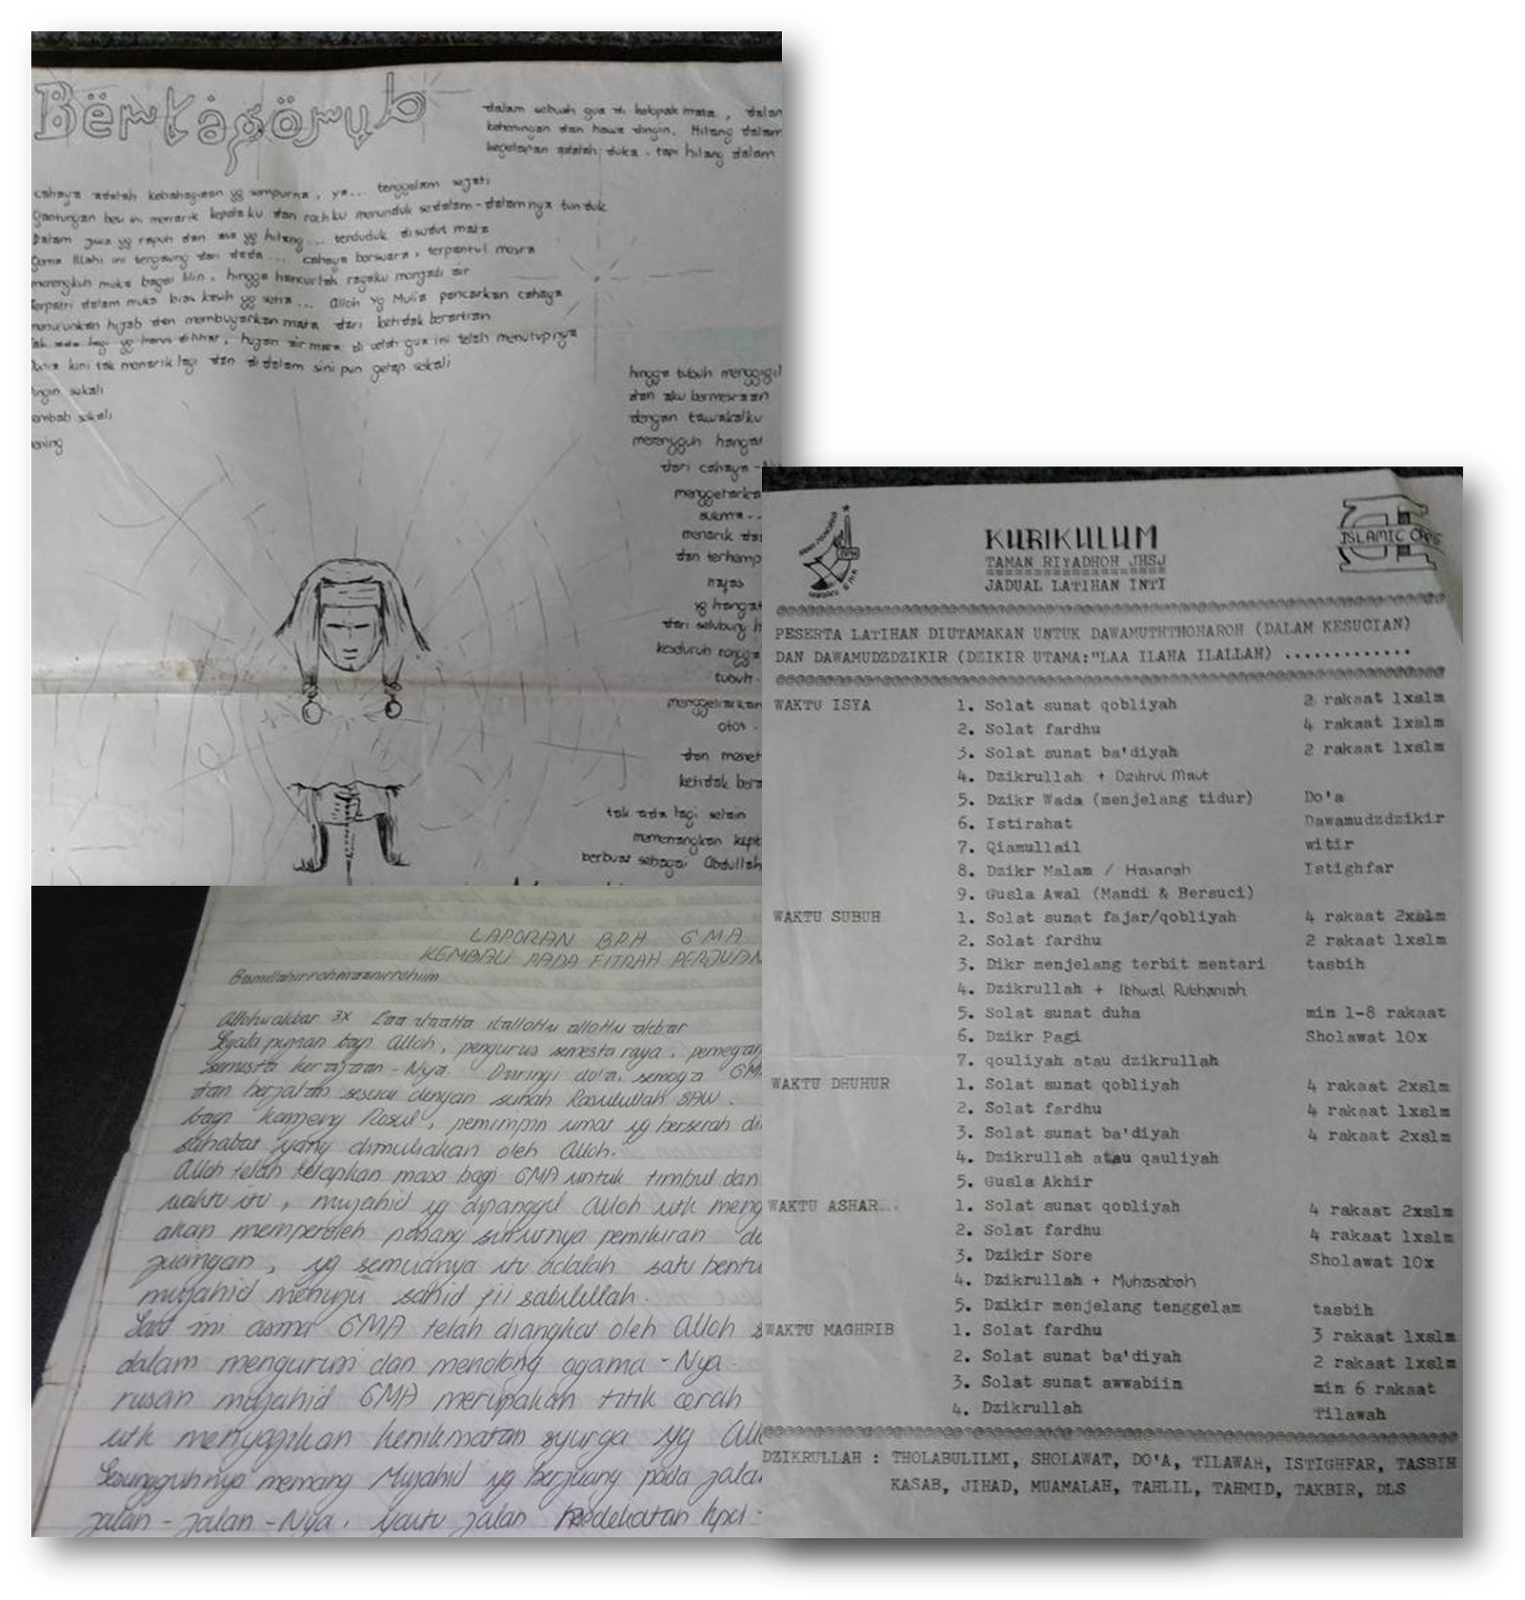 Bertaqorub
dalam sebuah gua di kelopak mata, dalam
keheningan dan hawa dingin. Hilang dalam
kegelapan adalah duka. tapi hilang dalam
cahaya adalah kebahagiaan yg sempurna, ya... tenggelam sejati
Gantungan besi ini menarik kepalaku dan rochku menunduk sedalam-dalamnya tunduk
Dalam gua yg rapuh dan asa yg hilang... terduduk disudut mata
Gema Illahi ini tergaung dari dada... cahaya bersuara, terpantul mesra
merengkuh muka bagai lilin, hingga hancurlah ragaku menjadi air
terpatri dalam muka bias kasih yg setia... Alloh Yg Mulia pancarkan cahaya
menurunkan hijab dan membuyarkan mata dari ketidak berartian
Tak ada lagi yg harus dilihat, hujan air mata di celah gua ini telah menutupnya
Dunia kini tak menarik lagi dan di dalam sini pun gelap sekali
ingin sekali
embab sekali
ening
hingga tubuh menggigil
dan aku bermesraan
dengan tawakalku
merengguh hangat
dari cahaya-N
menggetarka
sukma..
menarik da
dan terhemp
nafas
yg hangat
dari selubung h
keseluruh rongga
tubuh.
menggetarkan
otot.
dan meret
ketidak bera
tak ada lagi selain
memenangkan kept
berbuat sebagai Abdullah
LAPORAN BPH GMA
KEMBALI PADA FITRAH PERJUAN
Bismillahirrohmaanirrohiim
Allohuakbar 3x Laa ilaaHa illalloHu alloHu akbar
Segala pujian bagi Alloh, pengurus semesta raya, pemegan
semesta kerajaan-Nya. Diiringi do'a, semoga GM
dan berjalan sesuai dengan sunah Rasulullah SAW.
bagi Kanjeng Rosul, pemimpin umat yg berserah di
sahabat yang dimuliakan oleh Alloh.
Alloh telah tetapkan masa bagi GMA untuk timbul dan
waktu itu, mujahid yg dipanggil Alloh utk meng
akan memperoleh pasang surutnya pemikiran da
juangan, yg semuanya itu adalah satu bentu
mujahid menuju sahid fii sabilillah.
Saat ini asma GMA telah diangkat oleh Alloh s
dalam mengurusi dan menolong agama-Nya.
rusan mujahid GMA merupakan titik cerah
utk menyajikan kenikmatan syurga yg All
Sesungguhnya memang Mujahid yg berjuang pada jala
jalan-jalan-Nya, yaitu jalan kedekatan kpd-
ISLAMIC CAMP
KURIKULUM
TAMAN RIYADHOH JHSJ
JADUAL LATIHAN INTI
PESERTA LATIHAN DIUTAMAKAN UNTUK DAWAMUTHTHOHAROH (DALAM KESUCIAN)
DAN DAWAMUDZDZIKIR (DZIKIR UTAMA:"LAA ILAHA ILALLAH) .............
WAKTU ISYA 1. Solat sunat qobliyah 2 rakaat 1xslm
2. Solat fardhu 4 rakaat 1xslm
3. Solat sunat ba'diyah 2 rakaat 1xslm
4. Dzikrullah + Dzikrul Maut
5. Dzikr Wada (menjelang tidur) Do'a
6. Istirahat Dawamudzdzikir
7. Qiamullail witir
8. Dzikr Malam / Hasanah Istighfar
9. Gusla Awal (Mandi & Bersuci)
WAKTU SUBUH 1. Solat sunat fajar/qobliyah 4 rakaat 2xslm
2. Solat fardhu 2 rakaat 1xslm
3. Dikr menjelang terbit mentari tasbih
4. Dzikrullah + Ikhwal Rukhaniah
5. Solat sunat duha min 1-8 rakaat
6. Dzikr Pagi Sholawat 10x
7. qouliyah atau dzikrullah
WAKTU DHUHUR 1. Solat sunat qobliyah 4 rakaat 2xslm
2. Solat fardhu 4 rakaat 1xslm
3. Solat sunat ba'diyah 4 rakaat 2xslm
4. Dzikrullah atau qauliyah
5. Gusla Akhir
WAKTU ASHAR 1. Solat sunat qobliyah 4 rakaat 2xslm
2. Solat fardhu 4 rakaat 1xslm
3. Dzikir Sore Sholawat 10x
4. Dzikrullah + Muhasabah
5. Dzikir menjelang tenggelam tasbih
WAKTU MAGHRIB 1. Solat fardhu 3 rakaat 1xslm
2. Solat sunat ba'diyah 2 rakaat 1xslm
3. Solat sunat awwabiin min 6 rakaat
4. Dzikrullah Tilawah
DZIKRULLAH : THOLABULILMI, SHOLAWAT, DO'A, TILAWAH, ISTIGHFAR, TASBIH
KASAB, JIHAD, MUAMALAH, TAHLIL, TAHMID, TAKBIR, DLS